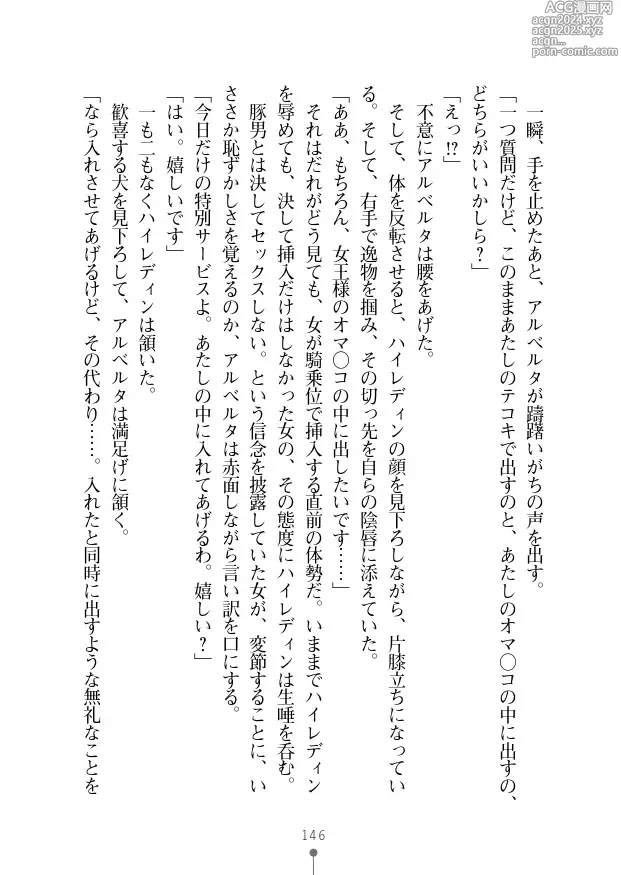 ACG漫画网
acgn2024.xyz
acgn2025.xyz
acgn...
porn-comic.com
一瞬、手を止めたあと、アルベルタが躊躇いがちの声を出す。
「一つ質問だけど、このままあたしのテコキで出すのと、あたしのオマ〇コの中に出すの、
どちらがいいかしら？」
「えっ!?」
不意にアルベルタは腰をあげた。
そして、体を反転させると、ハイレディンの顔を見下ろしながら、片膝立ちになってい
る。そして、右手で逸物を掴み、その切っ先を自らの陰唇に添えていた。
「ああ、もちろん、女王様のオマ〇コの中に出したいです……」
それはだれがどう見ても、女が騎乗位で挿入する直前の体勢だ。いままでハイレディン
を辱めても、決して挿入だけはしなかった女の、その態度にハイレディンは生唾を呑む。
豚男とは決してセックスしない。という信念を披露していた女が、変節することに、い
ささか恥ずかしさを覚えるのか、アルベルタは赤面しながら言い訳を口にする。
「今日だけの特別サービスよ。あたしの中に入れてあげるわ。嬉しい？」
「はい。嬉しいです」
一も二もなくハイレディンは頷いた。
歓喜する犬を見下ろして、アルベルタは満足げに頷く。
「なら入れさせてあげるけど、その代わり……。入れたと同時に出すような無礼なことを
146